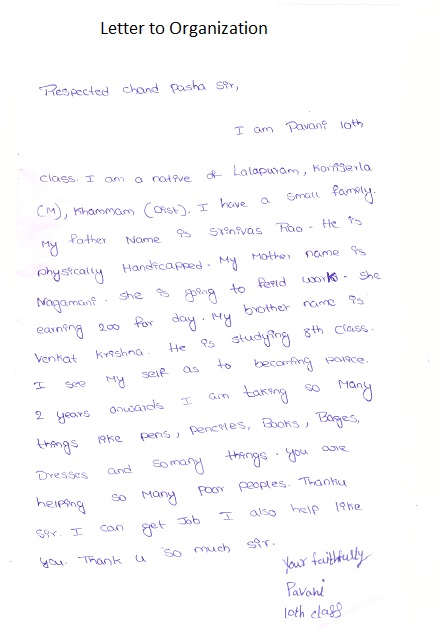 Letter to Organization
Respected chand pasha sir,
I am Pavani 10th
class. I am a native of Lalapuram, Konijerla
(M), Khammam (Dist). I have a small family.
My father Name is Srinivas Rao. He is
physically Handicapped. My Mother name is
Nagamani. she is going to feild work. she
earning 200 for day. My brother name is
Venkat krishna. He is studying 8th class.
I see My self as to becoming police.
2 years onwards I am taking so Many
things like pens, penciles, Books, Bages,
Dresses and somany things. you are
helping so Many poor peoples. Thanku
sir. I can get Job I also help like
you. Thank u so much sir.
Your faithfully
Pavani
10th class